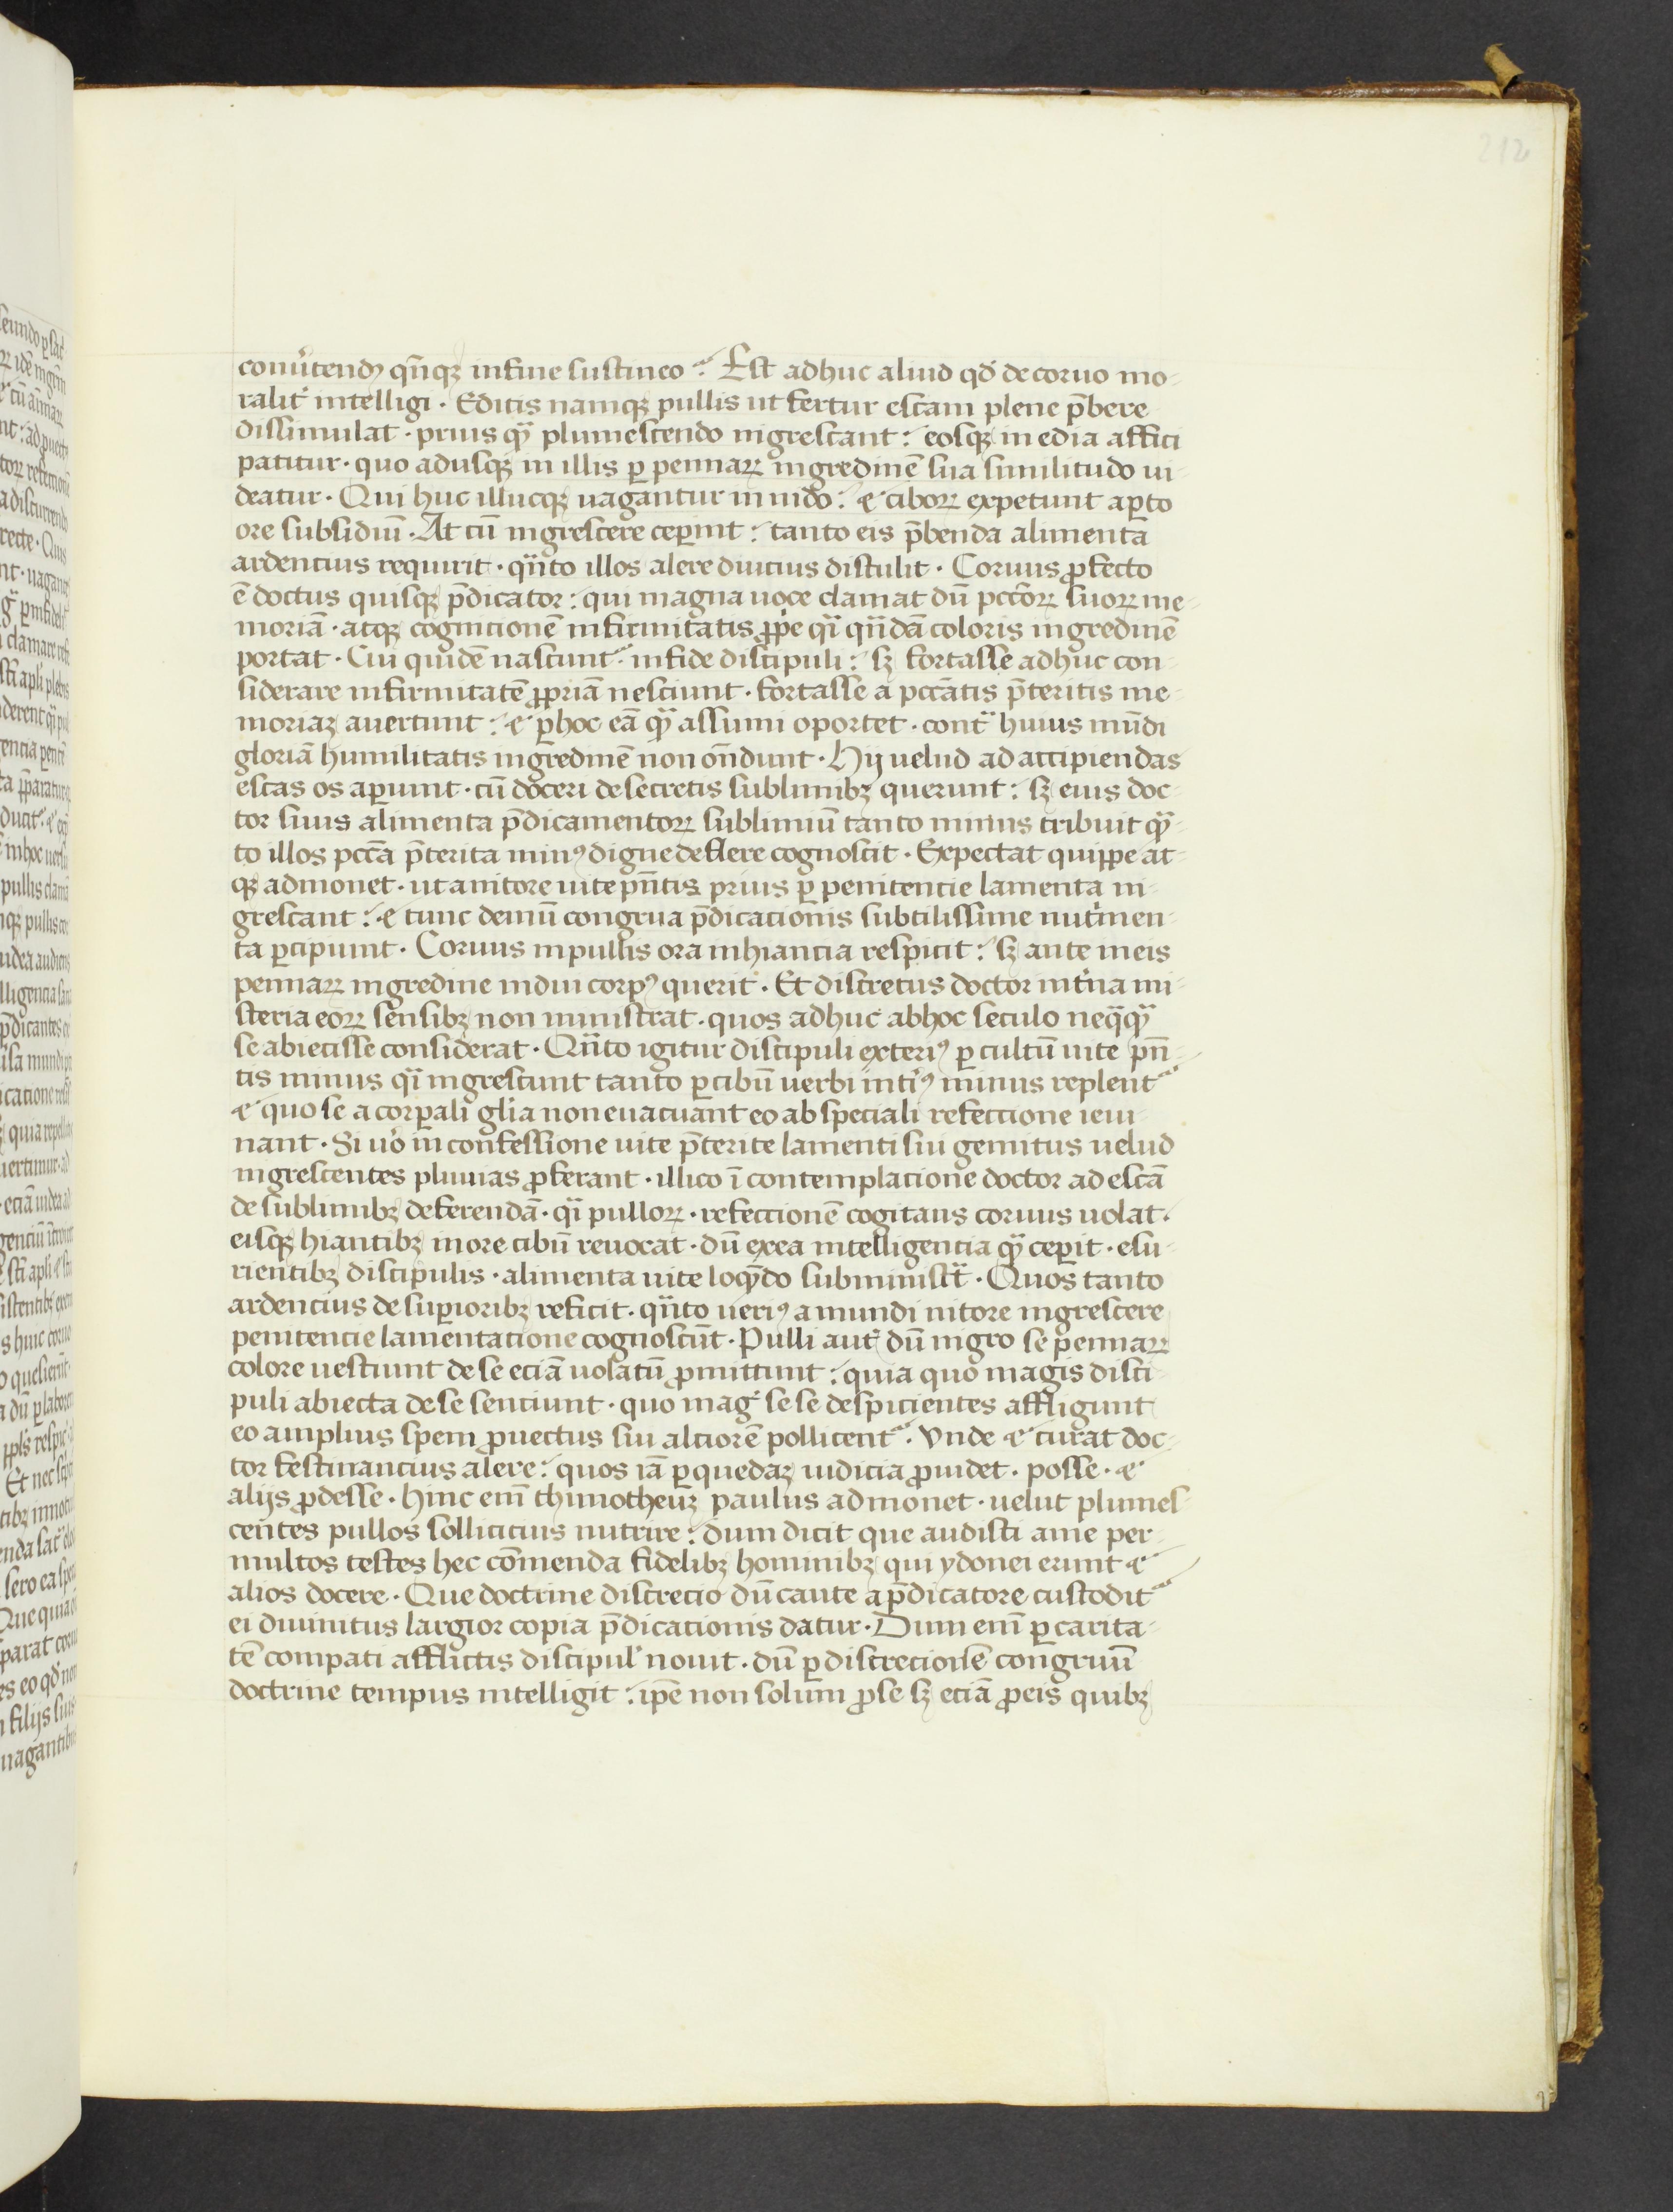 212
conũtendꝫ qñqꝫ infine sustineo. Est adhuc aliud qđ de coruo mo-
ralit̾ intelligi. Editis namqꝫ pullis ut fertur escam plene p̄bere
dissimulat. prius qᷓ plumescendo nigrescant: eosqꝫ in edia affici
patitur. quo adusqꝫ in illis ꝑ pennaꝝ nigredinē sua similitudo ui-
deatur. Qui huc illucqꝫ uagantur in nido: ⁊ ciboꝝ expetunt aꝑto
ore subsidiū. At cū nigrescere ceꝑint: tanto eis p̄benda alimenta
ardencius requirit. qᷓnto illos alere diucius distulit. Coruus ꝓfecto
ē doctus quisqꝫ p̄dicator: qui magna uoce clamat dū pcc̄oꝝ suoꝝ me-
moriā. atqꝫ cognicionē infirmitatis ꝓpe qᷓi qᷓndā coloris nigredinē
portat. Cui quidē nascunt᷑ infide discipuli: sꝫ fortasse adhuc con-
siderare infirmitatē ꝓpriā nesciunt. fortasse a pcc̄atis p̄teritis me-
moriaꝫ auertunt: ⁊ ꝑhoc eā qᷓ assumi oportet. contᷓ huius mūdi
gloriā humilitatis nigredinē non on̄dunt. Hij uelud ad accipiendas
escas os aꝑiunt. cū doceri de secretis sublimibꝫ querunt: sꝫ eius doc-
tor suus alimenta p̄dicamentoꝝ sublimiū tanto minus tribuit qᷓ-
to illos pcc̄a p̄terita minꝰ digne deflere cognoscit. Expectat quippe at-
qꝫ admonet. ut anitore uite pn̄tis prius ꝑ penitencie lamenta ni-
grescant: ⁊ tunc demū congrua p̄dicationis subtilissime nutͥmen-
ta ꝑcipiunt. Coruus inpullis ora inhiancia respicit: sꝫ ante ineis
pennaꝝ nigredine indui corpꝰ querit. Et discretus doctor int̾na mi-
steria eoꝝ sensibꝫ non ministrat. quos adhuc abhoc seculo neqᷓqᷓ
se abiecisse considerat. Qᷓnto igitur discipuli exteriꝰ ꝑ cultū uite pn̄-
tis minus qᷓi nigrescunt tanto ꝑ cibū uerbi int̾iꝰ minus replent᷑
⁊ quo se a corꝑali gl̾ia non euacuant eo ab speciali refeccione ieiu-
nant. Si uͦo in confessione uite p̄terite lamenti sui gemitus uelud
nigrescentes plumas ꝓferant. illico ī contemplacione doctor ad escā
de sublimibꝫ deferendā. qᷓi pulloꝝ. refeccionē cogitans coruus uolat.
eisqꝫ hiantibꝫ more cibū reuocat. dū exea intelligencia qᷓ ceꝑit. esu-
rientibꝫ discipulis. alimenta uite loqᷓdo subministᷓt. Quos tanto
ardencius de suꝑioribꝫ reficit. qᷓnto ueriꝰ a mundi nitore nigrescere
penitencie lamentatione cognoscūt. Pulli aut̾ dū nigro se pennaꝝ
colore uestiunt de se eciā uolatū ꝓmittunt: quia quo magis disci-
puli abiecta de se senciunt. quo mag̾ se se despicientes affligunt
eo amplius spem ꝓuectus sui alciorē pollicent᷑. Vnde ⁊ curat doc-
tor festinancius alere: quos iā ꝑ quedaꝫ iudicia ꝓuidet. posse. ⁊
alijs ꝓdesse. hinc em̄ thimotheūꝫ paulus admonet. uelut plumes-
centes pullos sollicicius nutrire: dum dicit que audisti ame per
multos testes hec cōmenda fidelibꝫ hominibꝫ qui ydonei erunt ⁊
alios docere. Que doctrine discrecio dū caute a p̄dicatore custodit᷑
ei diuinitus largior copia p̄dicationis datur. Dum em̄ ꝑ carita-
tē compati afflictis discipul̾ nouit. dū ꝑ discrecionē congruū
doctrine tempus intelligit: ip̄e non solum ꝓ se sꝫ eciā ꝓ eis quibꝫ